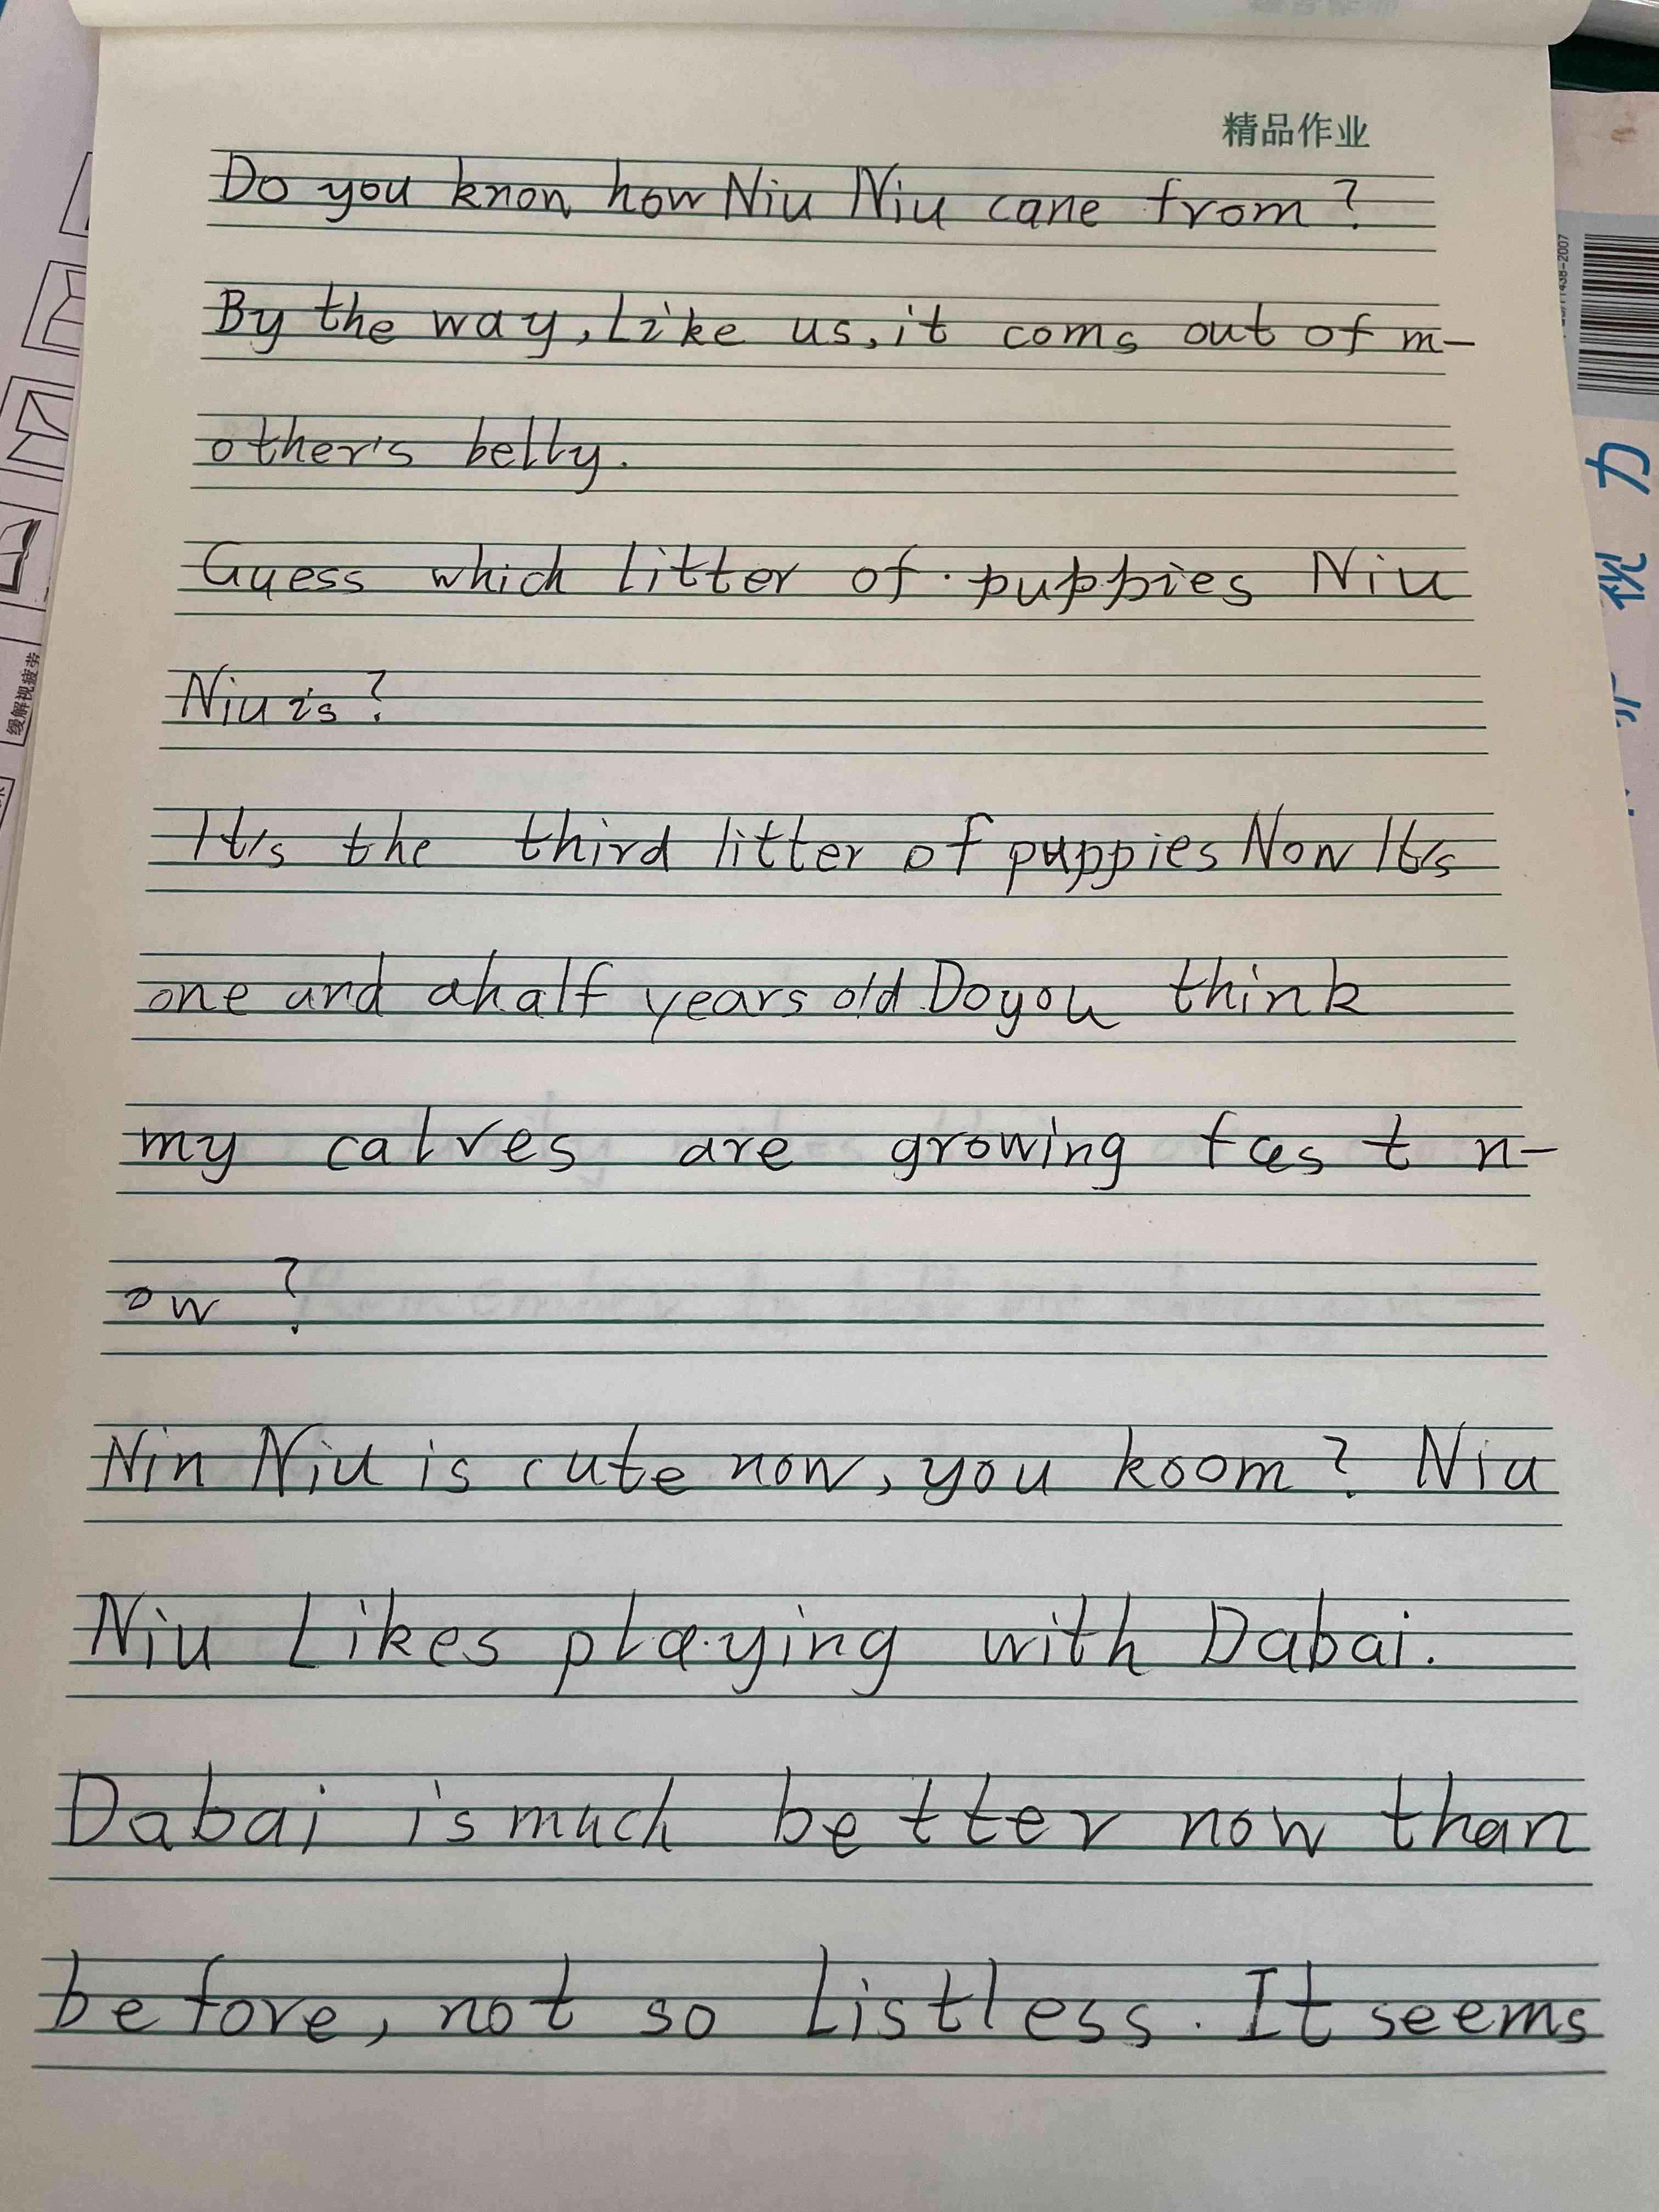 精品作业
Do you knon how Niu Niu cane from?
By the way, Like us, it coms out of m-
other's belly.
Guess which litter of puppies Niu
Niu is?
It's the third litter of puppies Non It's
one and ahalf years old Doyou think
my calves are growing fast n-
ow ?
Nin Niu is cute now, you koom? Niu
Niu Likes playing with Dabai.
Dabai is much better now than
before, not so Listless. It seems
缓解视疲劳
视力